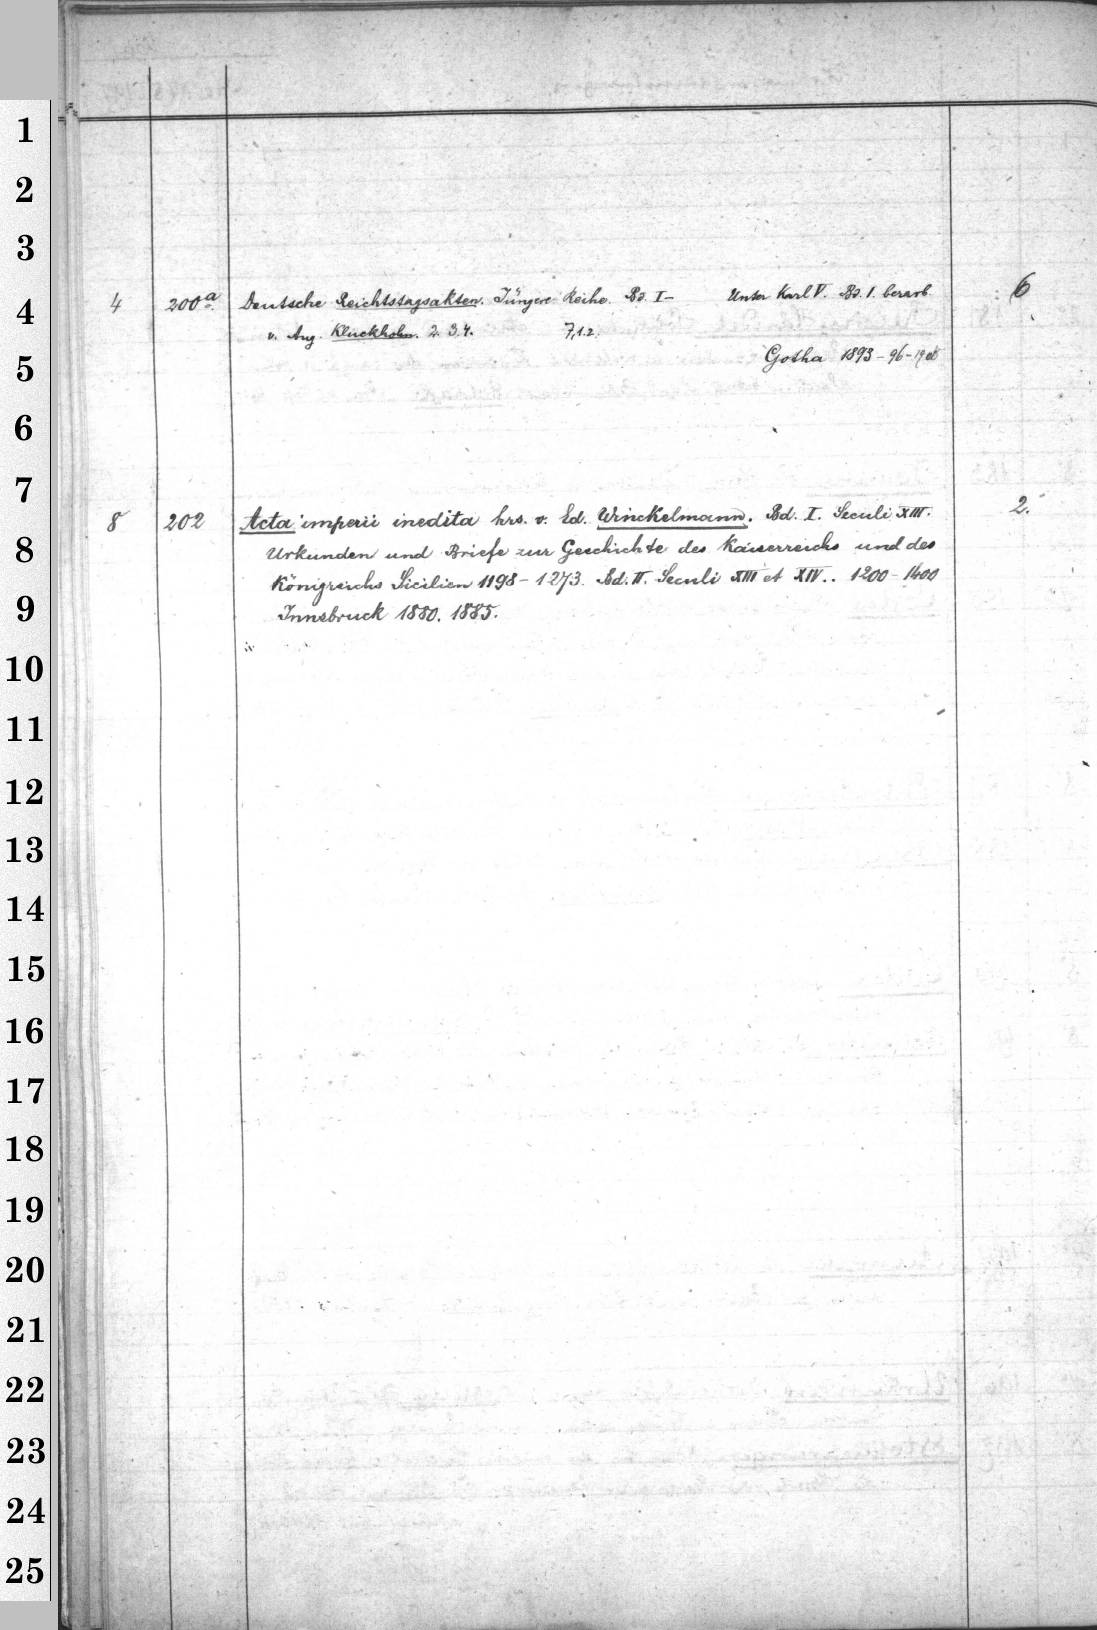 1
2
3
4
5
6
7
8
9
10
11
12
13
14
15
16
17
18
19
20
21
22
23
24
25
4 200a. Deutsche Reichstagsakten. Jüngere Reihe. Bd. I– Unter Karl V. Bd. 1. bearb. 6
v. Aug. Kluckhohn. 2. 3.4. 7,1.2.
Gotha 1893–96–
8 202 Acta imperii inedita hrs. v. Ed. Winckelmann. Bd. I. Seculi XIII. 2.
Urkunden und Briefe zur Geschichte des Kaiserreichs und des
Königreichs Sicilien 1198–1273. Bd. II. Seculi XIII et XIV.. 1200–1400
Innsbruck 1880. 1885.